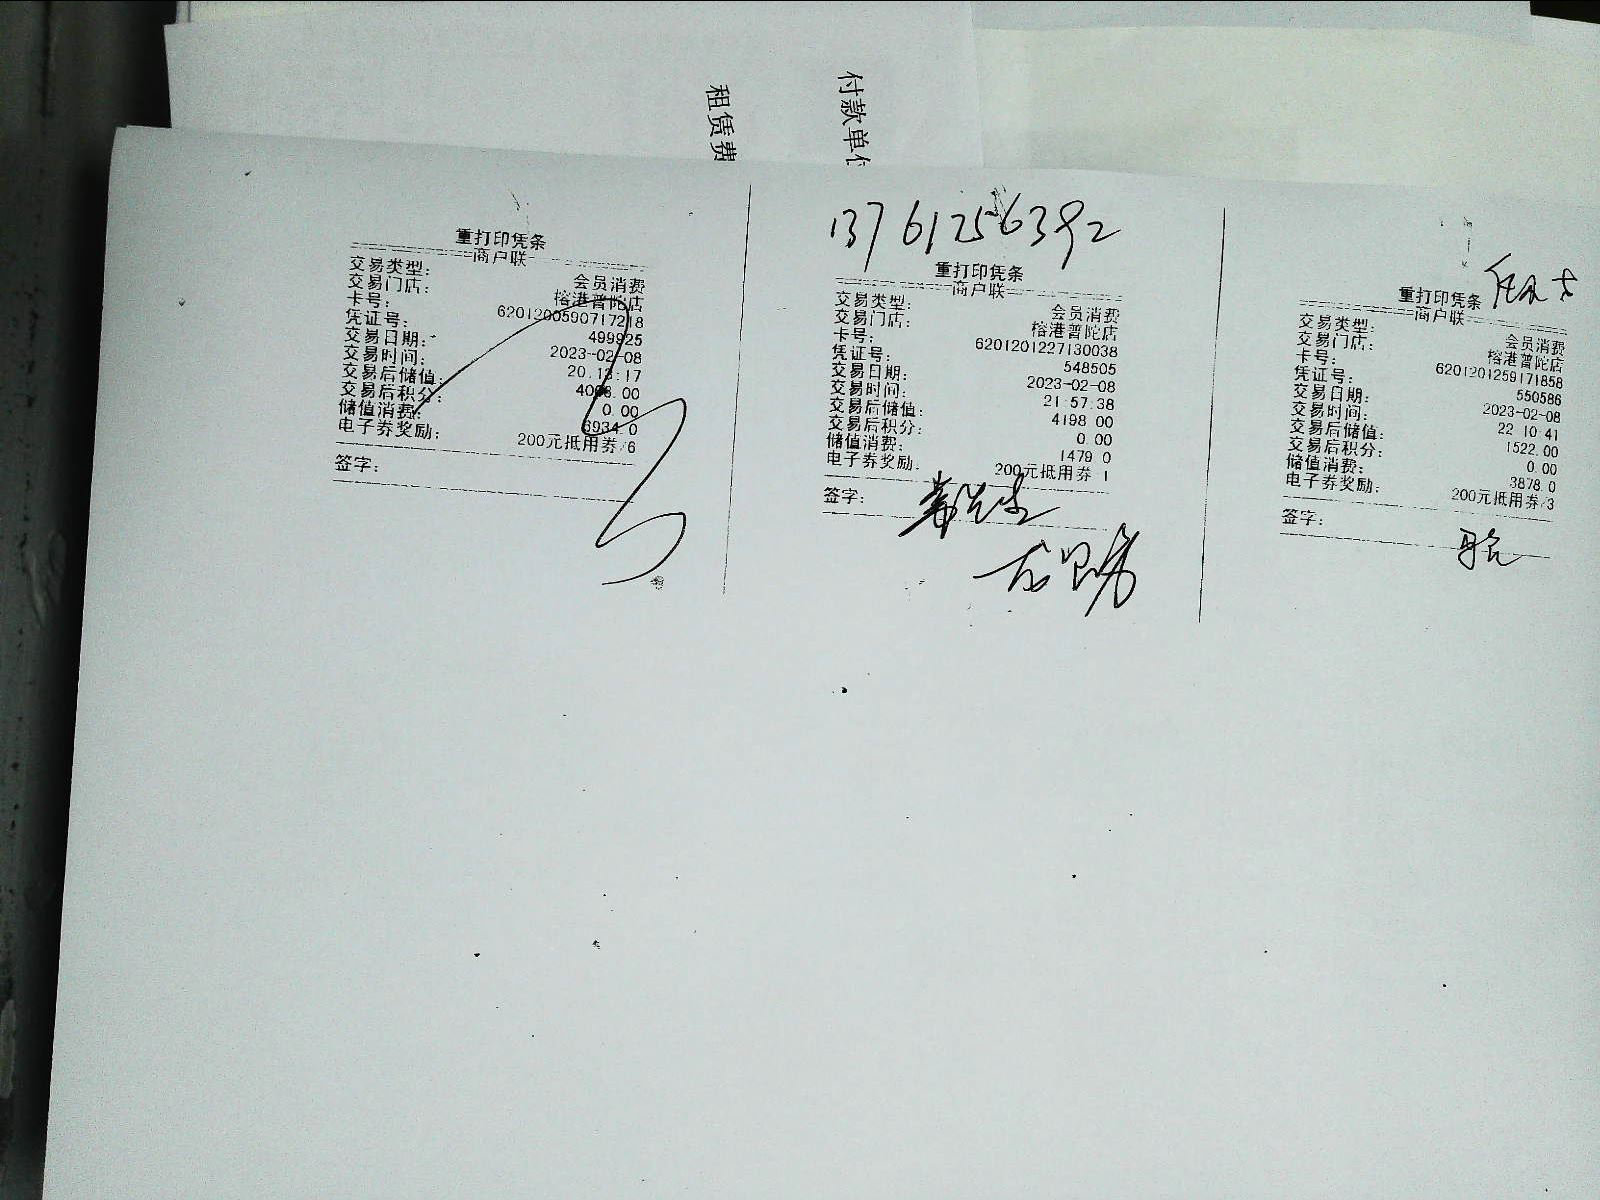 租赁费
付款单位
重打印凭条
商户联
交易类型: 会员消费
交易门店: 榕港普陀店
卡号: 6201200590717218
凭证号: 499925
交易日期: 2023-02-08
交易时间: 20:13:17
交易后储值: 4008.00
交易后积分: 0.00
储值消费: 6934.0
电子券奖励: 200元抵用券/6
签字:
13761256392
重打印凭条
商户联
交易类型: 会员消费
交易门店: 榕港普陀店
卡号: 6201201227130038
凭证号: 548505
交易日期: 2023-02-08
交易时间: 21:57:38
交易后储值: 4198.00
交易后积分: 0.00
储值消费: 1479.0
电子券奖励: 200元抵用券/1
签字:
重打印凭条
商户联
交易类型: 会员消费
交易门店: 榕港普陀店
卡号: 6201201259171858
凭证号: 550586
交易日期: 2023-02-08
交易时间: 22:10:41
交易后储值: 1522.00
交易后积分: 0.00
储值消费: 3878.0
电子券奖励: 200元抵用券/3
签字: